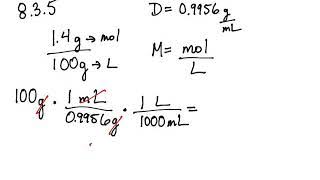 8.3.5
D = 0.9956 g/mL
1.4g → mol
100g → L
M = mol/L
100g · 1 mL/0.9956g · 1 L/1000mL =